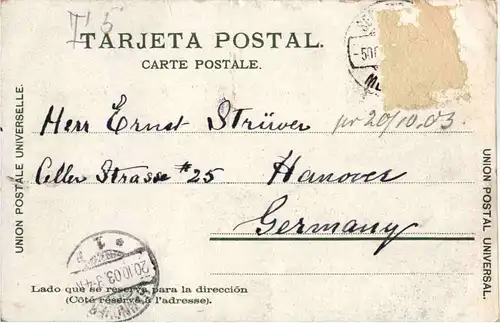 T 5
TARJETA POSTAL.
CARTE POSTALE.
UNION POSTALE UNIVERSELLE.
Herr Ernst Strüver
pr 20/10.03.
Celler Strasse #25
Hanover
Germany
UNION POSTAL UNIVERSAL.
20.10.03.
Lado que se reserva para la dirección
(Côté réservé à l'adresse).